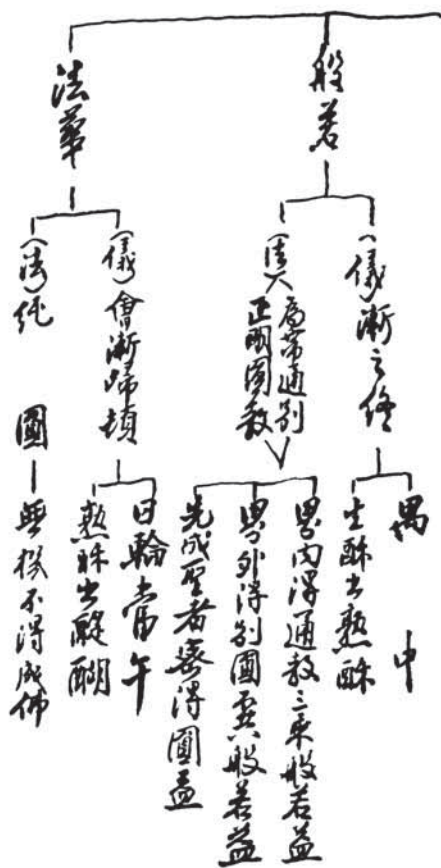 般若
(儀)漸之終
禺中
生酥出熟酥
(法)
為帶通別
正明圓教
界內得通教三乘般若益
界外得別圓不共般若益
先成聖者密得圓益
法華
(儀)會漸歸頓
日輪當午
熟酥出醍醐
(法)純圓
無機不得成佛